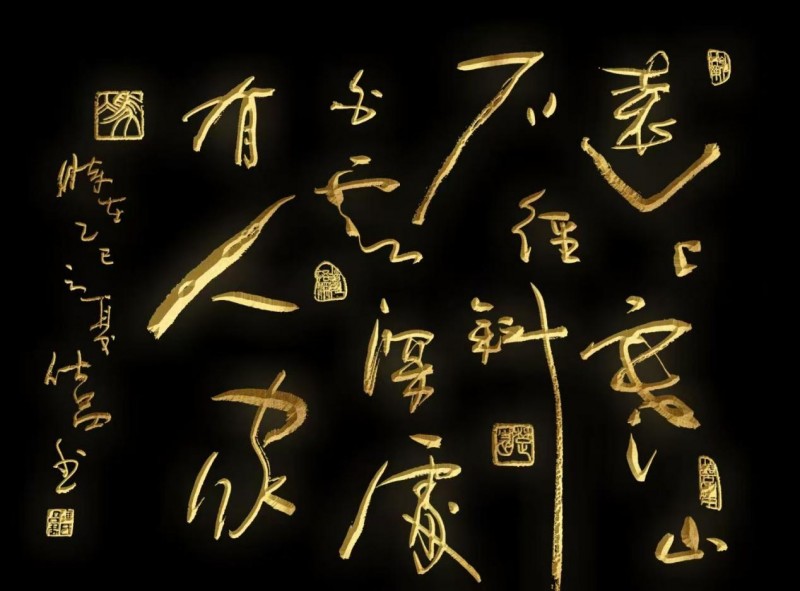 遠上寒山
石徑斜
白雲深處
有人家
時在乙巳之夏